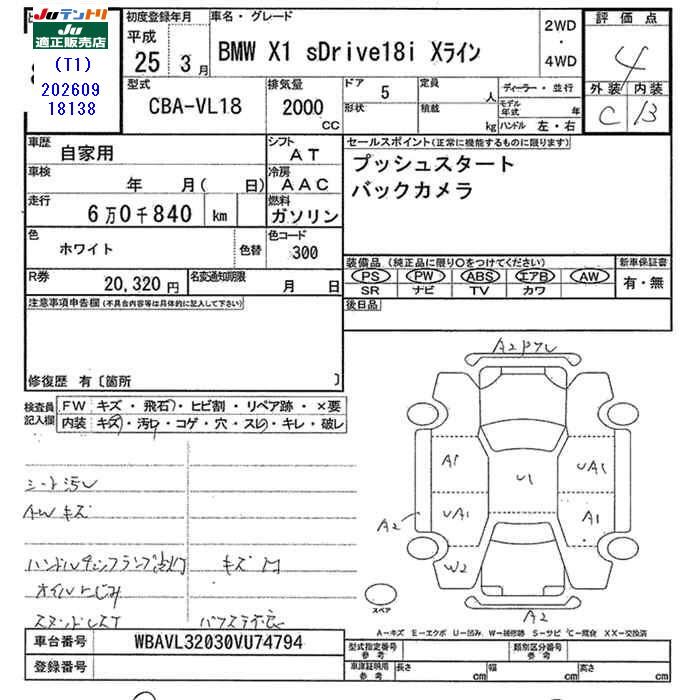 Juテントリ
Ju
適正販売店
(T1)
202609
18138
初度登録年月
平成
25 3月
車名・グレード
BMW X1 sDrive18i Xライン
2WD
・
4WD
評価点
4
外装 内装
C B
型式
CBA-VL18
排気量
2000
CC
ドア 5
形状
定員 人
積載 kg
ディーラー・並行
モデル年式 年
ハンドル 左・右
車歴 自家用
シフト AT
車検 年 月( 日)
冷房 AAC
走行 6万0千840 km
燃料 ガソリン
色 ホワイト 色替
色コード 300
R券 20,320円
名変通知期限 月 日
セールスポイント(正常に機能するものに限ります)
プッシュスタート
バックカメラ
装備品 (純正品に限り○をつけてください)
PS PW ABS エアB AW
SR ナビ TV カワ
新車保証書
有・無
後日品
注意事項申告欄(不具合内容等は具体的に記入して下さい)
修復歴 有〔箇所 〕
検査員
記入欄
FW キズ・飛石・ヒビ割・リペア跡・×要
内装 キズ・汚れ・コゲ・穴・スレ・キレ・破レ
シート汚レ
AWキズ
オイルにじみ
A2
A1
U1
UA1
A2
UA1
A1
W2
A2
スペア
A-キズ E-エクボ U-凹み W-補修跡 S-サビ C-腐食 XX-交換済
車台番号 WBAVL32030VU74794
登録番号
型式指定番号
参考
類別区分番号
参考
車庫証明用
参考
長さ cm 幅 cm 高さ cm